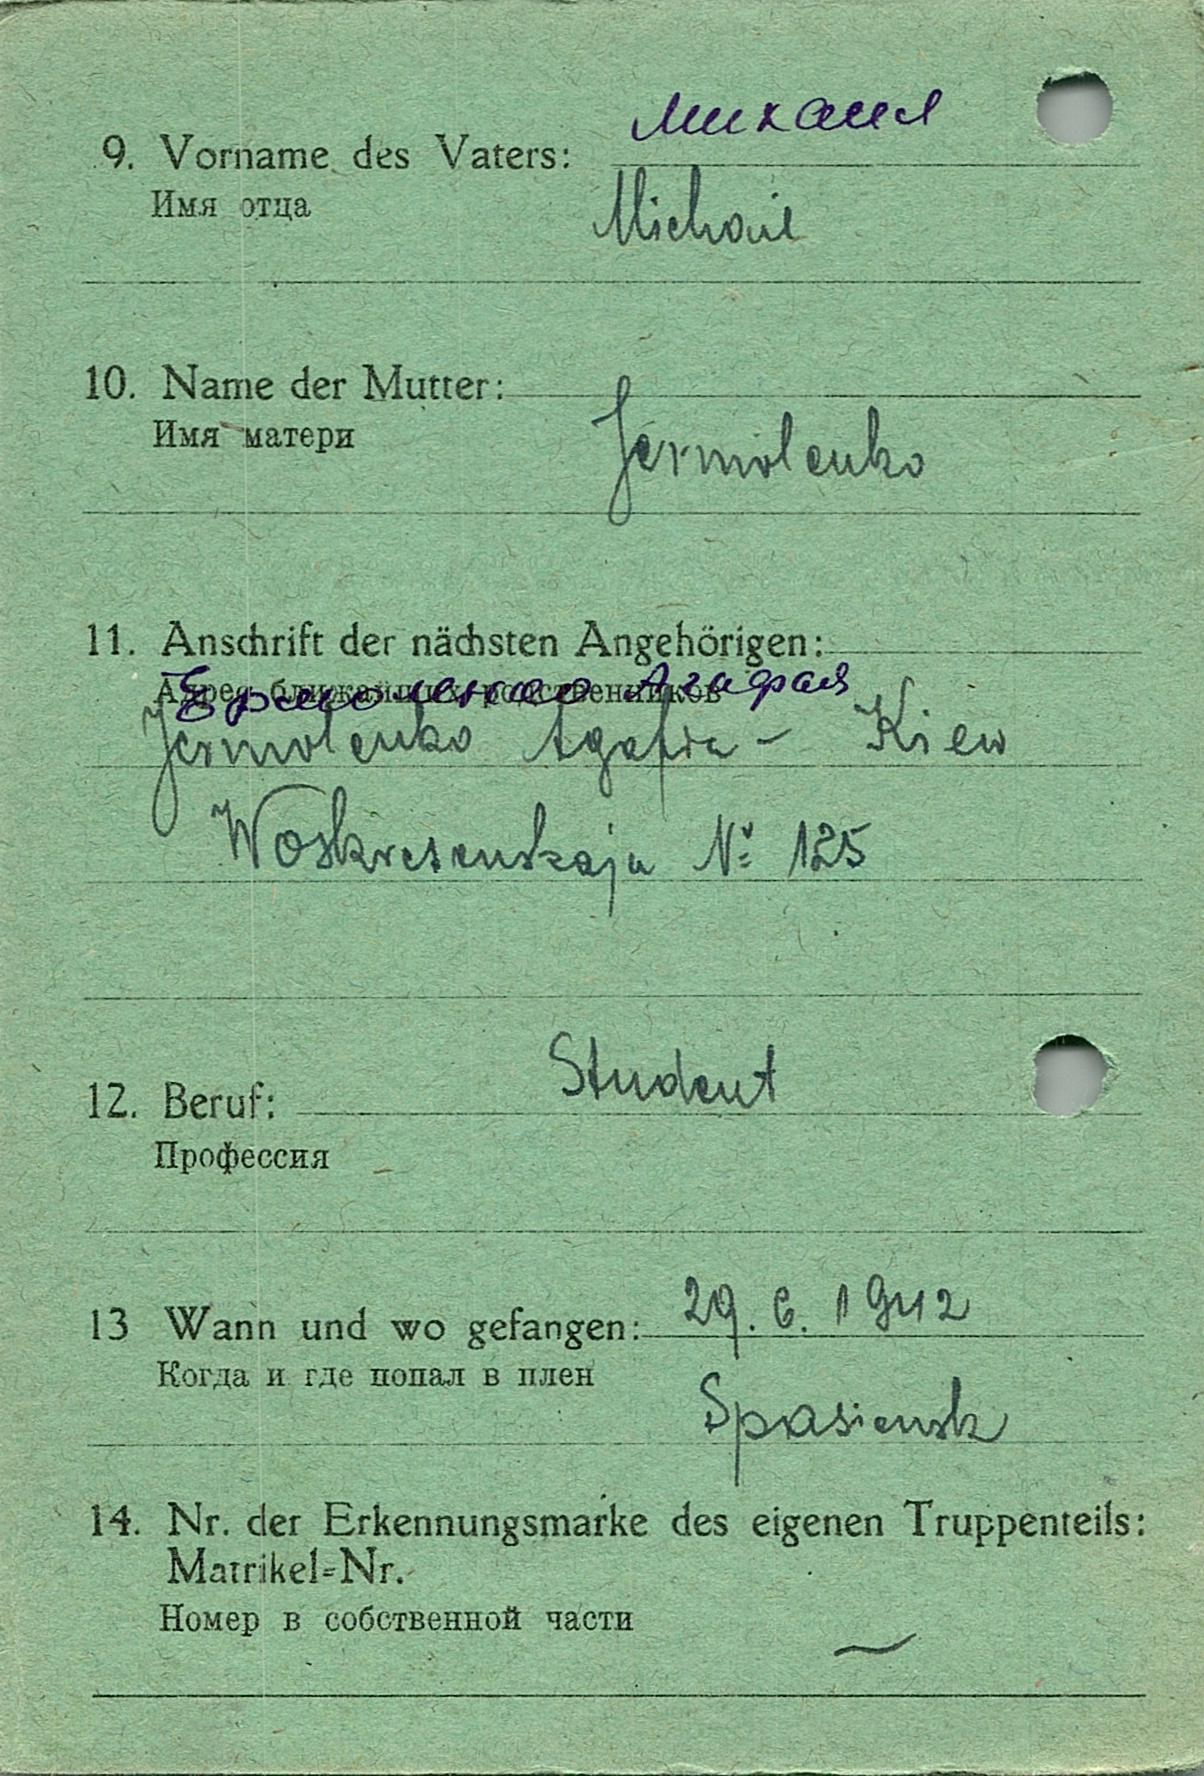 Михаил
9. Vorname des Vaters:
Имя отца
Michail
10. Name der Mutter:
Имя матери
Jermolenko
11. Anschrift der nächsten Angehörigen:
Адрес ближайших родственников
Ермоленко Агафая
Jermolenko Agafia - Kiew
Woskresenskaja № 125
Student
12. Beruf:
Профессия
13 Wann und wo gefangen: 29. 6. 1942
Когда и где попал в плен
Spasiensk
14. Nr. der Erkennungsmarke des eigenen Truppenteils:
Matrikel-Nr.
Номер в собственной части